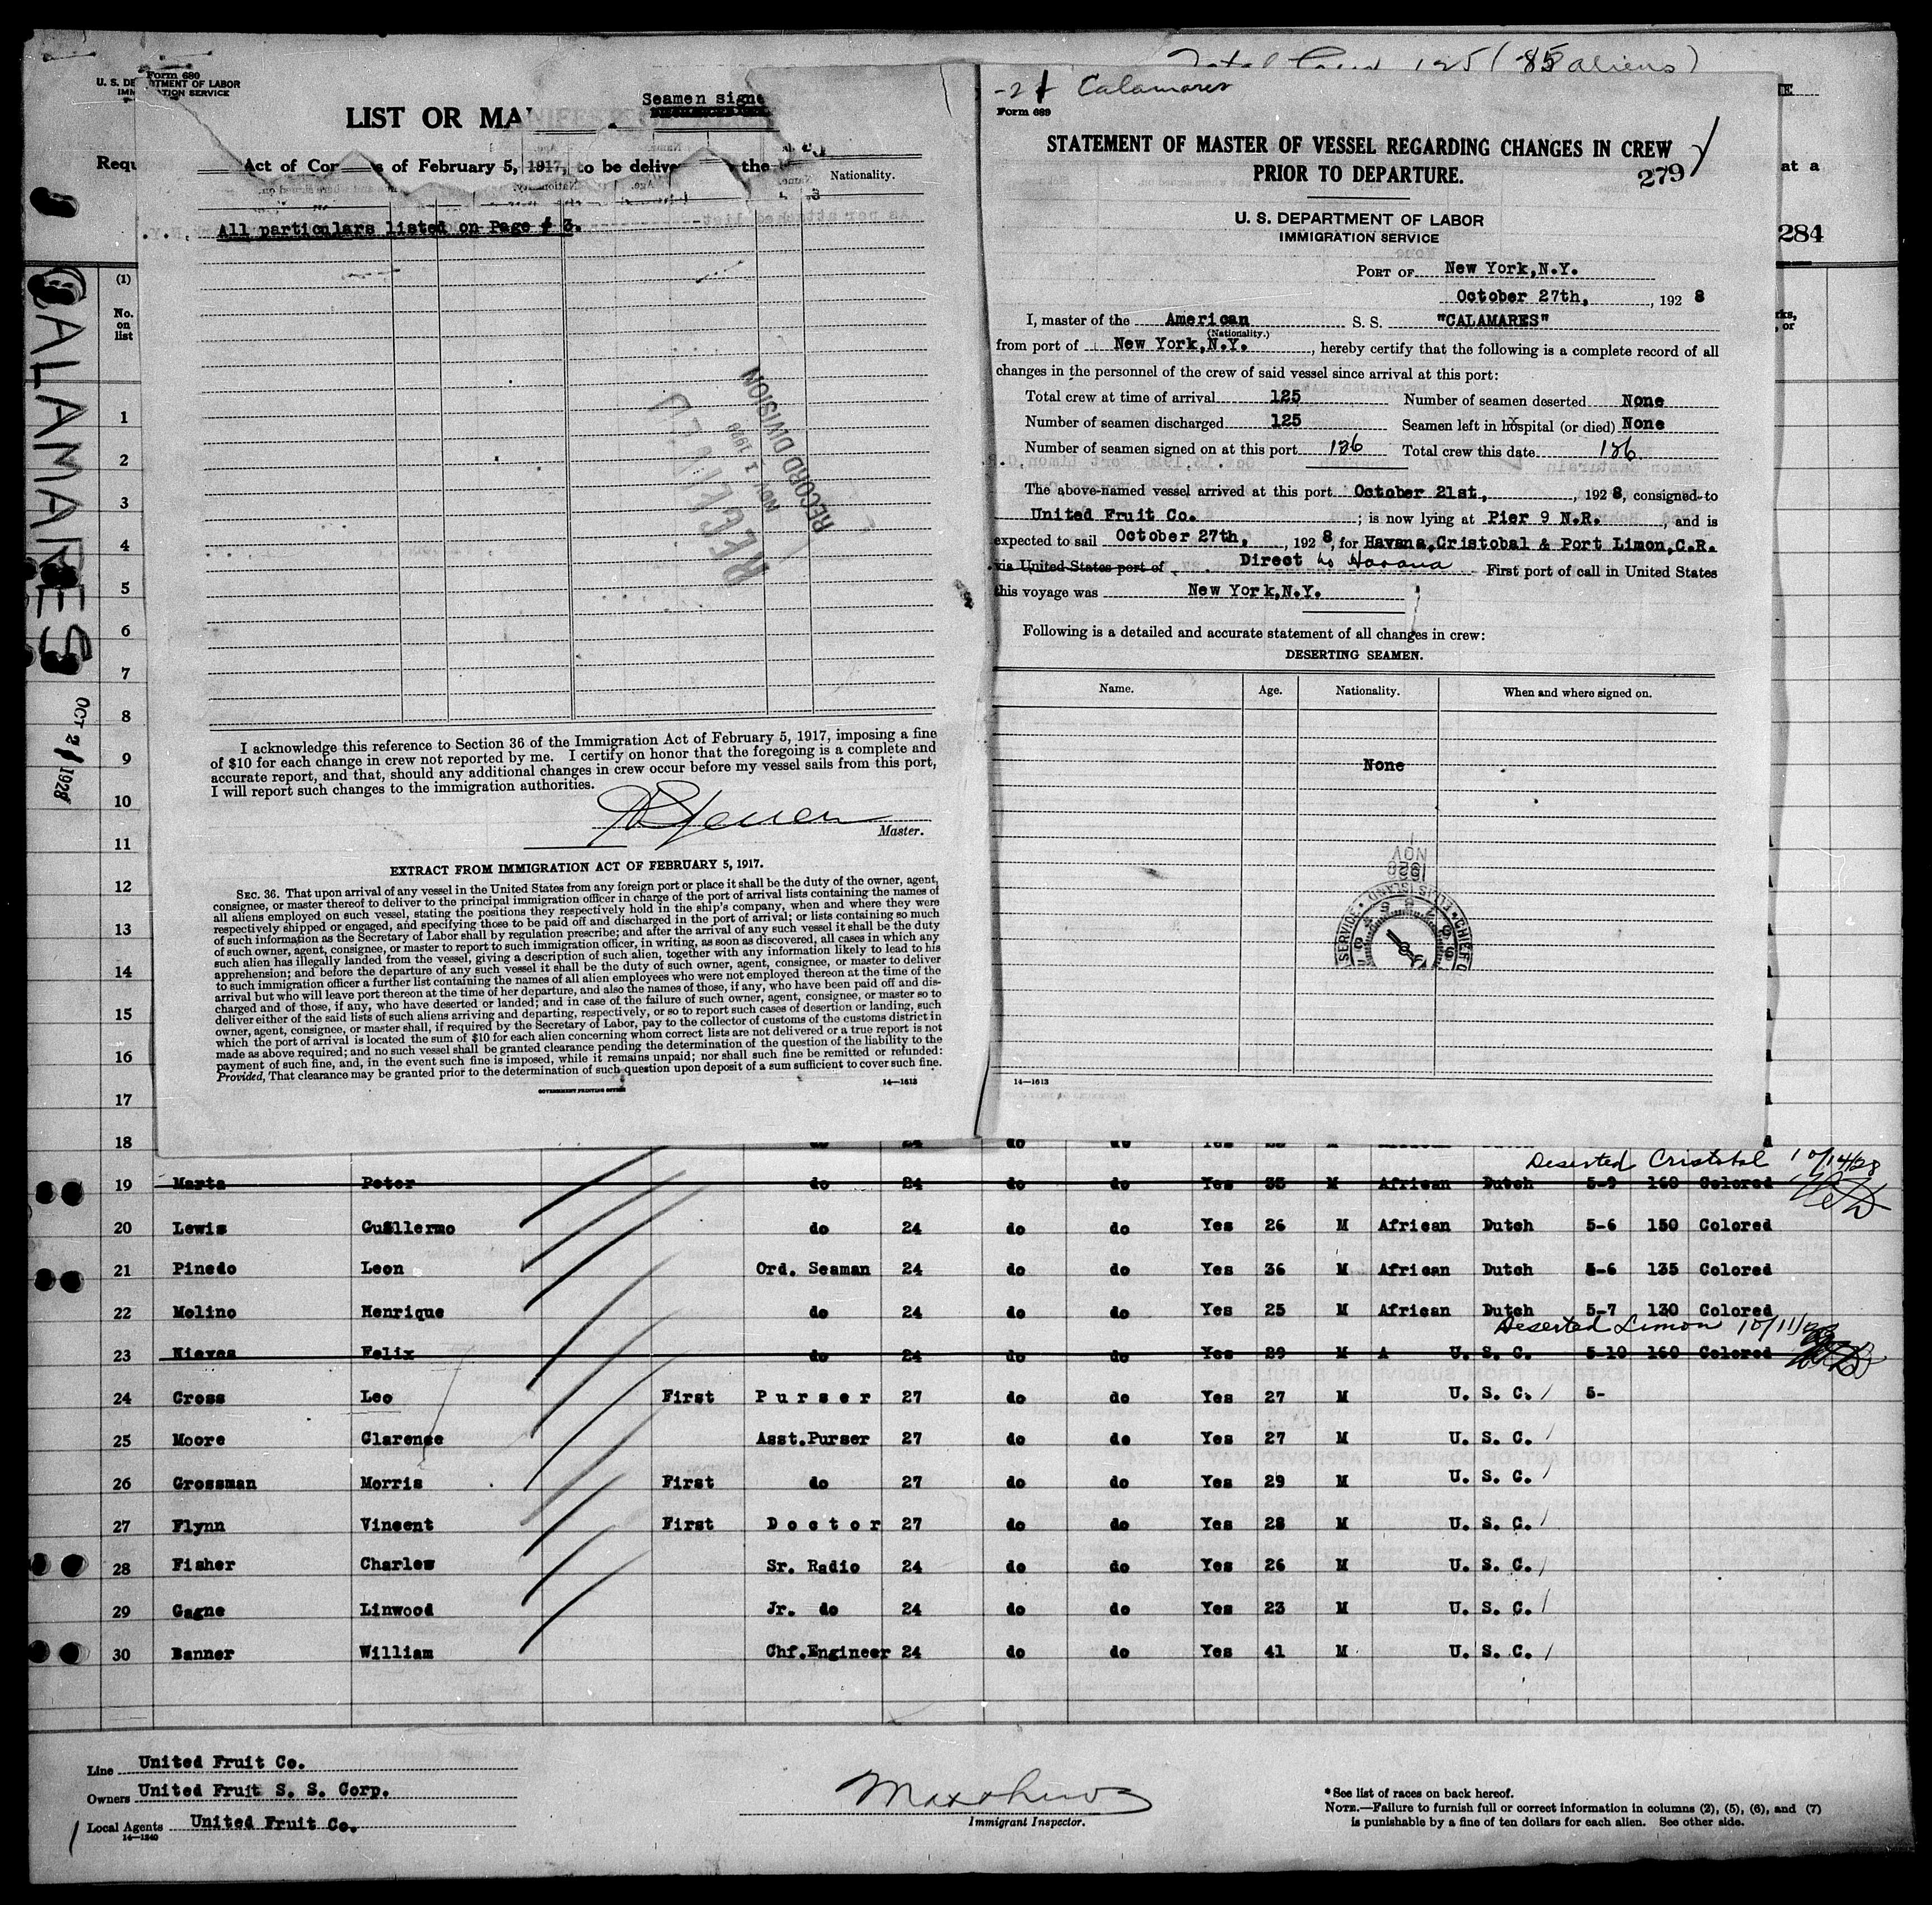 Total Crew 125 (85 aliens)
Form 680
U. S. DEPARTMENT OF LABOR
IMMIGRATION SERVICE
LIST OR MANIFEST
Seamen signe
Act of Congress of February 5, 1917, to be delive the
Nationality.
All particulars listed on Page # 3.
RECEIVED
NOV 1 1928
RECORD DIVISION
I acknowledge this reference to Section 36 of the Immigration Act of February 5, 1917, imposing a fine
of $10 for each change in crew not reported by me. I certify on honor that the foregoing is a complete and
accurate report, and that, should any additional changes in crew occur before my vessel sails from this port,
I will report such changes to the immigration authorities.
Master.
EXTRACT FROM IMMIGRATION ACT OF FEBRUARY 5, 1917.
SEC. 36. That upon arrival of any vessel in the United States from any foreign port or place it shall be the duty of the owner, agent,
consignee, or master thereof to deliver to the principal immigration officer in charge of the port of arrival lists containing the names of
all aliens employed on such vessel, stating the positions they respectively hold in the ship's company, when and where they were
respectively shipped or engaged, and specifying those to be paid off and discharged in the port of arrival; or lists containing so much
of such information as the Secretary of Labor shall by regulation prescribe; and after the arrival of any such vessel it shall be the duty
of such owner, agent, consignee, or master to report to such immigration officer, in writing, as soon as discovered, all cases in which any
such alien has illegally landed from the vessel, giving a description of such alien, together with any information likely to lead to his
apprehension; and before the departure of any such vessel it shall be the duty of such owner, agent, consignee, or master to deliver
to such immigration officer a further list containing the names of all alien employees who were not employed thereon at the time of the
arrival but who will leave port thereon at the time of her departure, and also the names of those, if any, who have been paid off and dis-
charged and of those, if any, who have deserted or landed; and in case of the failure of such owner, agent, consignee, or master so to
deliver either of the said lists of such aliens arriving and departing, respectively, or so to report such cases of desertion or landing, such
owner, agent, consignee, or master shall, if required by the Secretary of Labor, pay to the collector of customs of the customs district in
which the port of arrival is located the sum of $10 for each alien concerning whom correct lists are not delivered or a true report is not
made as above required; and no such vessel shall be granted clearance pending the determination of the question of the liability to the
payment of such fine, and, in the event such fine is imposed, while it remains unpaid; nor shall such fine be remitted or refunded:
Provided, That clearance may be granted prior to the determination of such question upon deposit of a sum sufficient to cover such fine.
GOVERNMENT PRINTING OFFICE
14—1613
Calamares
Form 689
STATEMENT OF MASTER OF VESSEL REGARDING CHANGES IN CREW
PRIOR TO DEPARTURE.
279
U. S. DEPARTMENT OF LABOR
IMMIGRATION SERVICE
PORT OF New York,N.Y.
October 27th, , 192 8
I, master of the American S. S. "CALAMARES"
(Nationality.)
from port of New York,N.Y. , hereby certify that the following is a complete record of all
changes in the personnel of the crew of said vessel since arrival at this port:
Total crew at time of arrival 125 Number of seamen deserted None
Number of seamen discharged 125 Seamen left in hospital (or died) None
Number of seamen signed on at this port 126 Total crew this date 126
The above-named vessel arrived at this port October 21st, , 192 8, consigned to
United Fruit Co. ; is now lying at Pier 9 N.R. , and is
expected to sail October 27th, , 192 8, for Havana,Cristobal & Port Limon,C.R.
via United States port of Direct to Havana First port of call in United States
this voyage was New York,N.Y.
Following is a detailed and accurate statement of all changes in crew:
DESERTING SEAMEN.
Name. Age. Nationality. When and where signed on.
None
NOV
1928
14—1613
at a
284
CALAMARES
OCT 21 1928
(1)
No. on list
1
2
3
4
5
6
7
8
9
10
11
12
13
14
15
16
17
18
Deserted Cristobal 10/14/28
19 Marta Peter do 24 do do Yes 35 M African Dutch 5-9 160 Colored
20 Lewis Guillermo do 24 do do Yes 26 M African Dutch 5-6 150 Colored
21 Pinedo Leon Ord. Seaman 24 do do Yes 36 M African Dutch 5-6 135 Colored
22 Molino Henrique do 24 do do Yes 25 M African Dutch 5-7 130 Colored
Deserted Limon 10/11/28
23 Nieves Felix do 24 do do Yes 29 M A U. S. C. 5-10 160 Colored
24 Cross Leo First Purser 27 do do Yes 27 M U. S. C. 5-
25 Moore Clarence Asst.Purser 27 do do Yes 27 M U. S. C.
26 Grossman Morris First do 27 do do Yes 29 M U. S. C.
27 Flynn Vincent First Doctor 27 do do Yes 28 M U. S. C.
28 Fisher Charles Sr. Radio 24 do do Yes 26 M U. S. C.
29 Gagne Linwood Jr. do 24 do do Yes 23 M U. S. C.
30 Banner William Chf.Engineer 24 do do Yes 41 M U. S. C.
Line United Fruit Co.
Owners United Fruit S. S. Corp.
Local Agents United Fruit Co.
14—1240
Immigrant Inspector.
* See list of races on back hereof.
NOTE.—Failure to furnish full or correct information in columns (2), (5), (6), and (7)
is punishable by a fine of ten dollars for each alien. See other side.